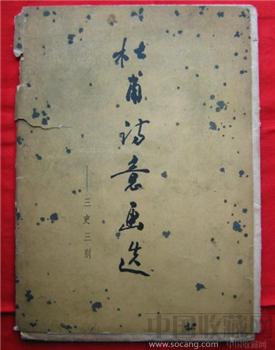 杜甫诗意画选
——三吏三别
中国收藏网
www.socang.com
中国收藏网